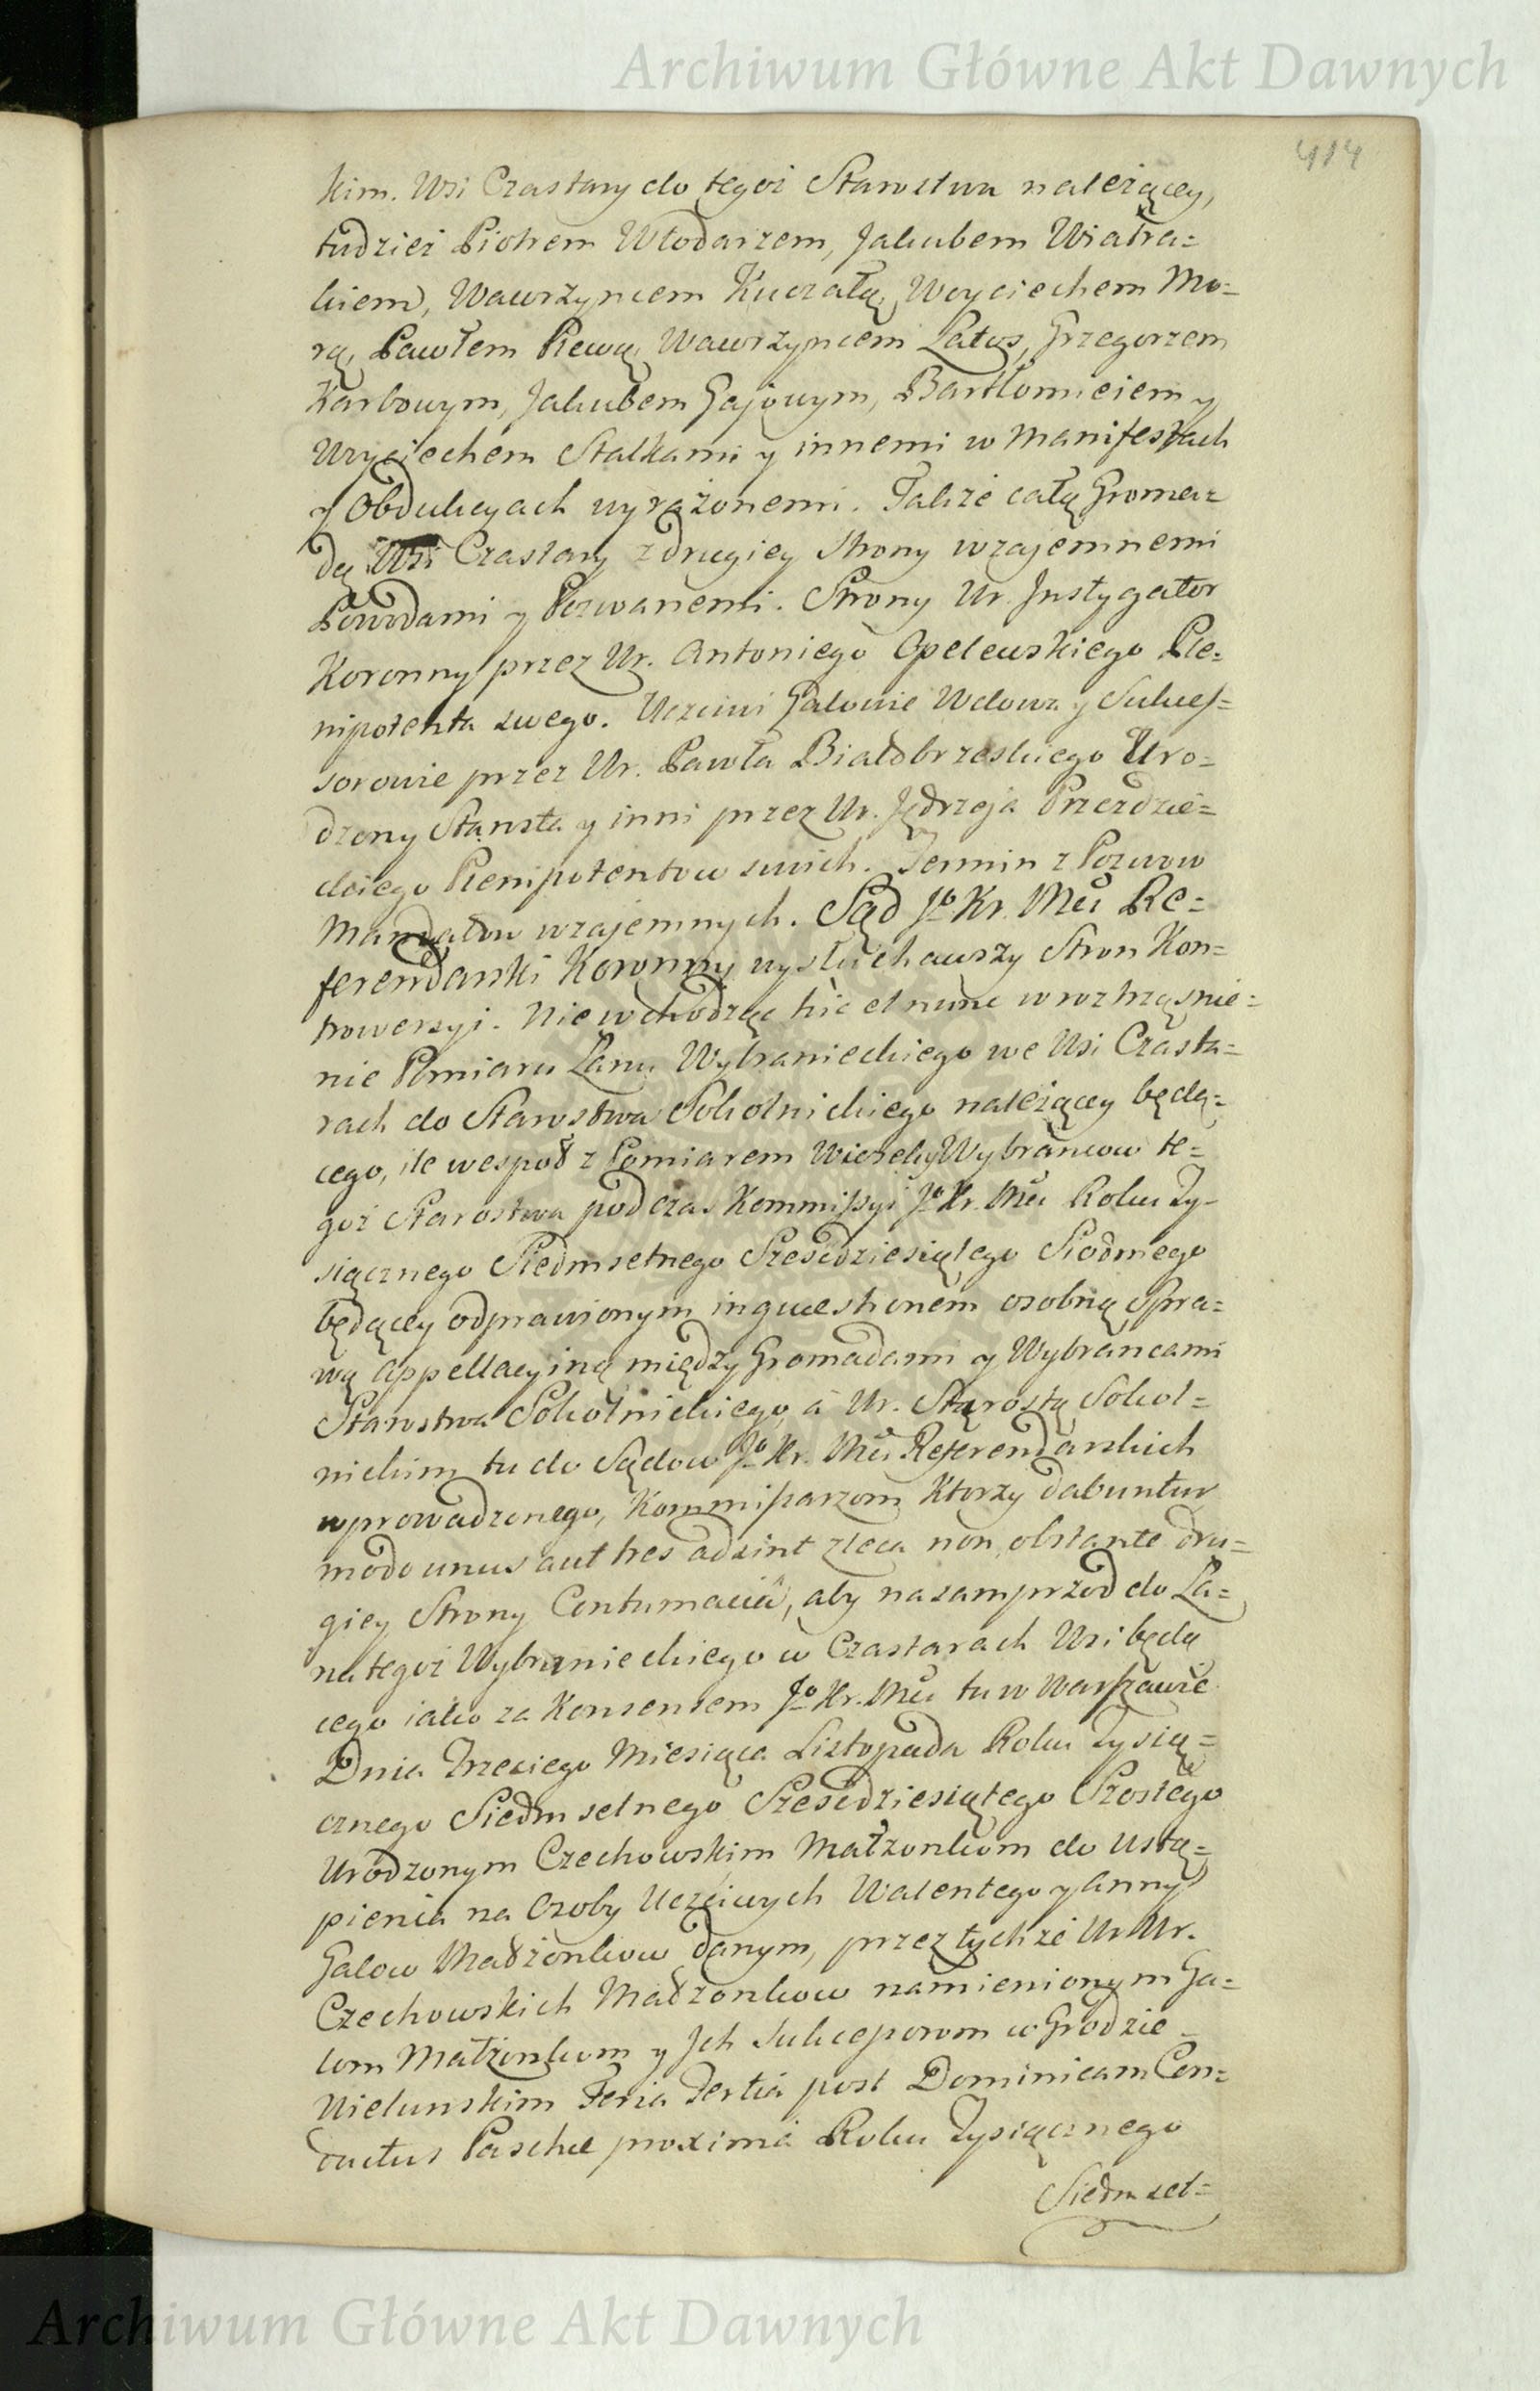 Archiwum Główne Akt Dawnych
414
kim. Wsi Czastary do tegoż Starostwa należącey,
tudzież Piotrem Włodarzem, Jakubem Wiatra=
kiem, Wawrzyncem Kuczałą, Woyciechem Mo=
rą, Pawłem Piewą, Wawrzyncem Latos, Grzegorzem
Karbowym, Jakubem Gajowym, Bartłomieiem y
Woyciechem Stalkami y innemi w Manifestach
y Obdukcyach wyrażonemi. Także całą Groma=
dą Wsi Czastary z drugiey Strony wzajemnemi
Powodami y Pozwanemi. Strony Ur. Instygator
Koronny przez Ur. Antoniego Opelewskiego Ple=
nipotenta swego. Uczciwi Galowie Wdowa y Sukces=
sorowie przez Ur. Pawła Białobrzeskiego Uro=
dzony Starosta y inni przez Ur. Jędrzeja Przezdzie=
ckiego Plenipotentow swoich. Termin z Pozwow
Mandatow wzajemnych. Sąd Jo Kr. Mci Re=
ferendarski Koronny wysłuchawszy Stron Kon=
trowersyi. Nie wchodząc hic et nunc w roztrząsnie=
nie Pomiaru Łanu Wybranieckiego we Wsi Czasta=
rach do Starostwa Sokolnickiego należącey będą=
cego, ile wespoł z Pomiarem Wybrancow te=
goż Starostwa podczas Kommissyi Jo Kr. Mci Roku Ty=
siącznego Siedmsetnego Szescdziesiątego Siodmego
będącey odprawionym in quaestionem osobną Spra=
wą Appellacyiną między Gromadami y Wybrancami
Starostwa Sokolnickiego, a Ur. Starostą Sokol=
nickim tu do Sądow Jo Kr. Mci Referendarskich
wprowadzonego, Kommissarzom Ktorzy dabuntur
modo unus aut tres adsint zleca non obstante dru=
giey Strony Contumacia, aby nasamprzod do Ła=
nu tegoż Wybranieckiego w Czastarach Wsi będą
cego iako za Konsensem Jo Kr. Mci tu w Warszawie
Dnia Trzeciego Miesiąca Listopada Roku Tysią=
cznego Siedmsetnego Szescdziesiątego Szostego
Urodzonym Czechowskim Małżonkom do Ustą=
pienia na Osoby Uczciwych Walentego y Anny
Galow Małżonkow danym, przez tychże Ur Ur.
Czechowskich Małżonkow namienionym Ga=
lom Małżonkom y Ich Sukcessorom w Grodzie
Wielunskim Feria Tertia post Dominicam Con=
ductus Paschae proxima Roku Tysiącznego
Siedmset=
Archiwum Główne Akt Dawnych